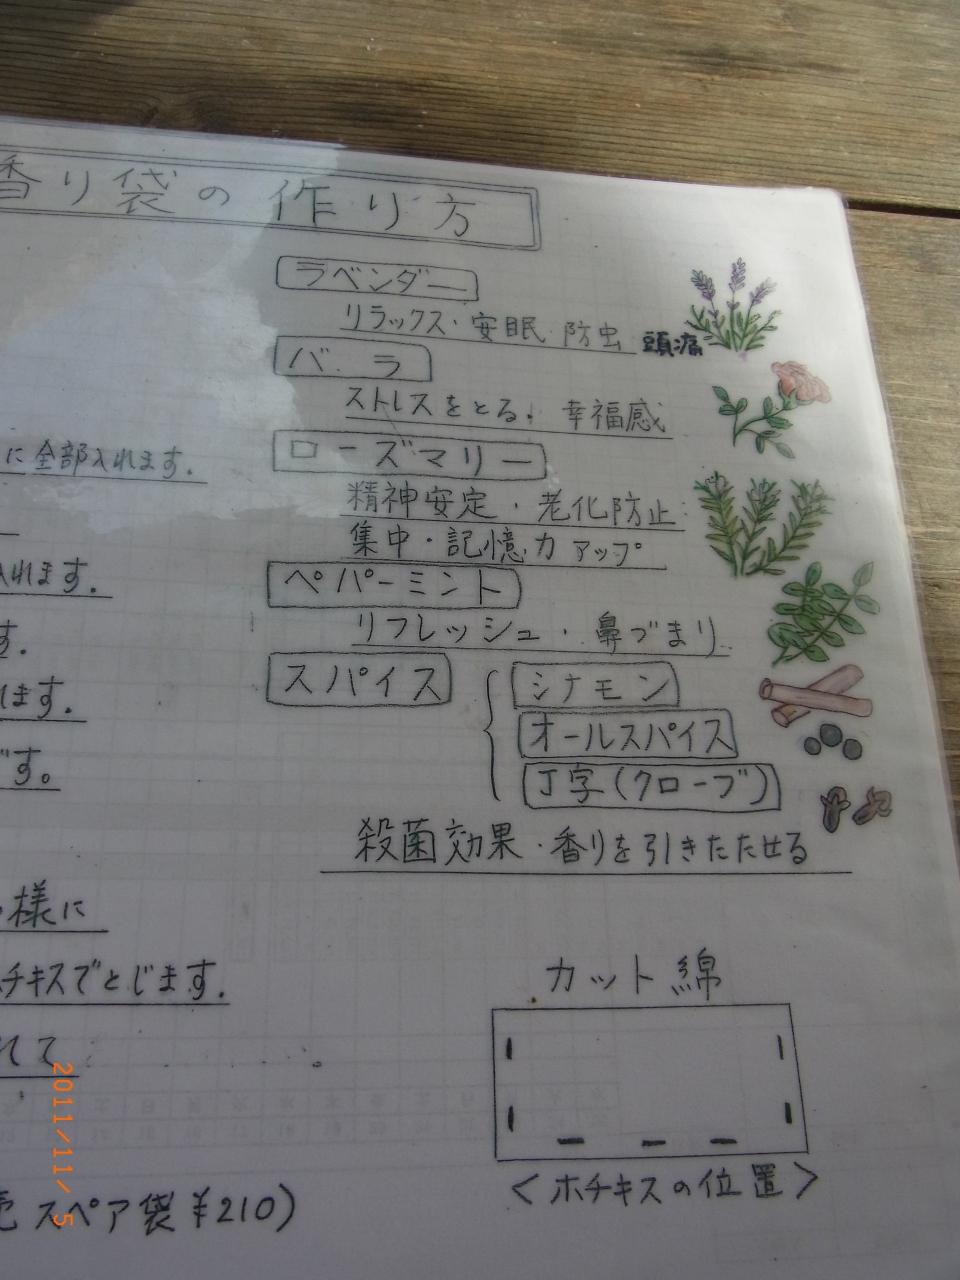 香り袋の作り方
ラベンダー
リラックス・安眠 防虫 頭痛
バラ
ストレスをとる、幸福感
ローズマリー
精神安定・老化防止
集中・記憶力アップ
ペパーミント
リフレッシュ・鼻づまり
スパイス
シナモン
オールスパイス
丁字(クローブ)
殺菌効果・香りを引きたたせる
に全部入れます.
れます.
す.
ます.
す。
様に
チキスでとじます.
て
カット綿
<ホチキスの位置>
スペア袋¥210)
2011/11/ 5